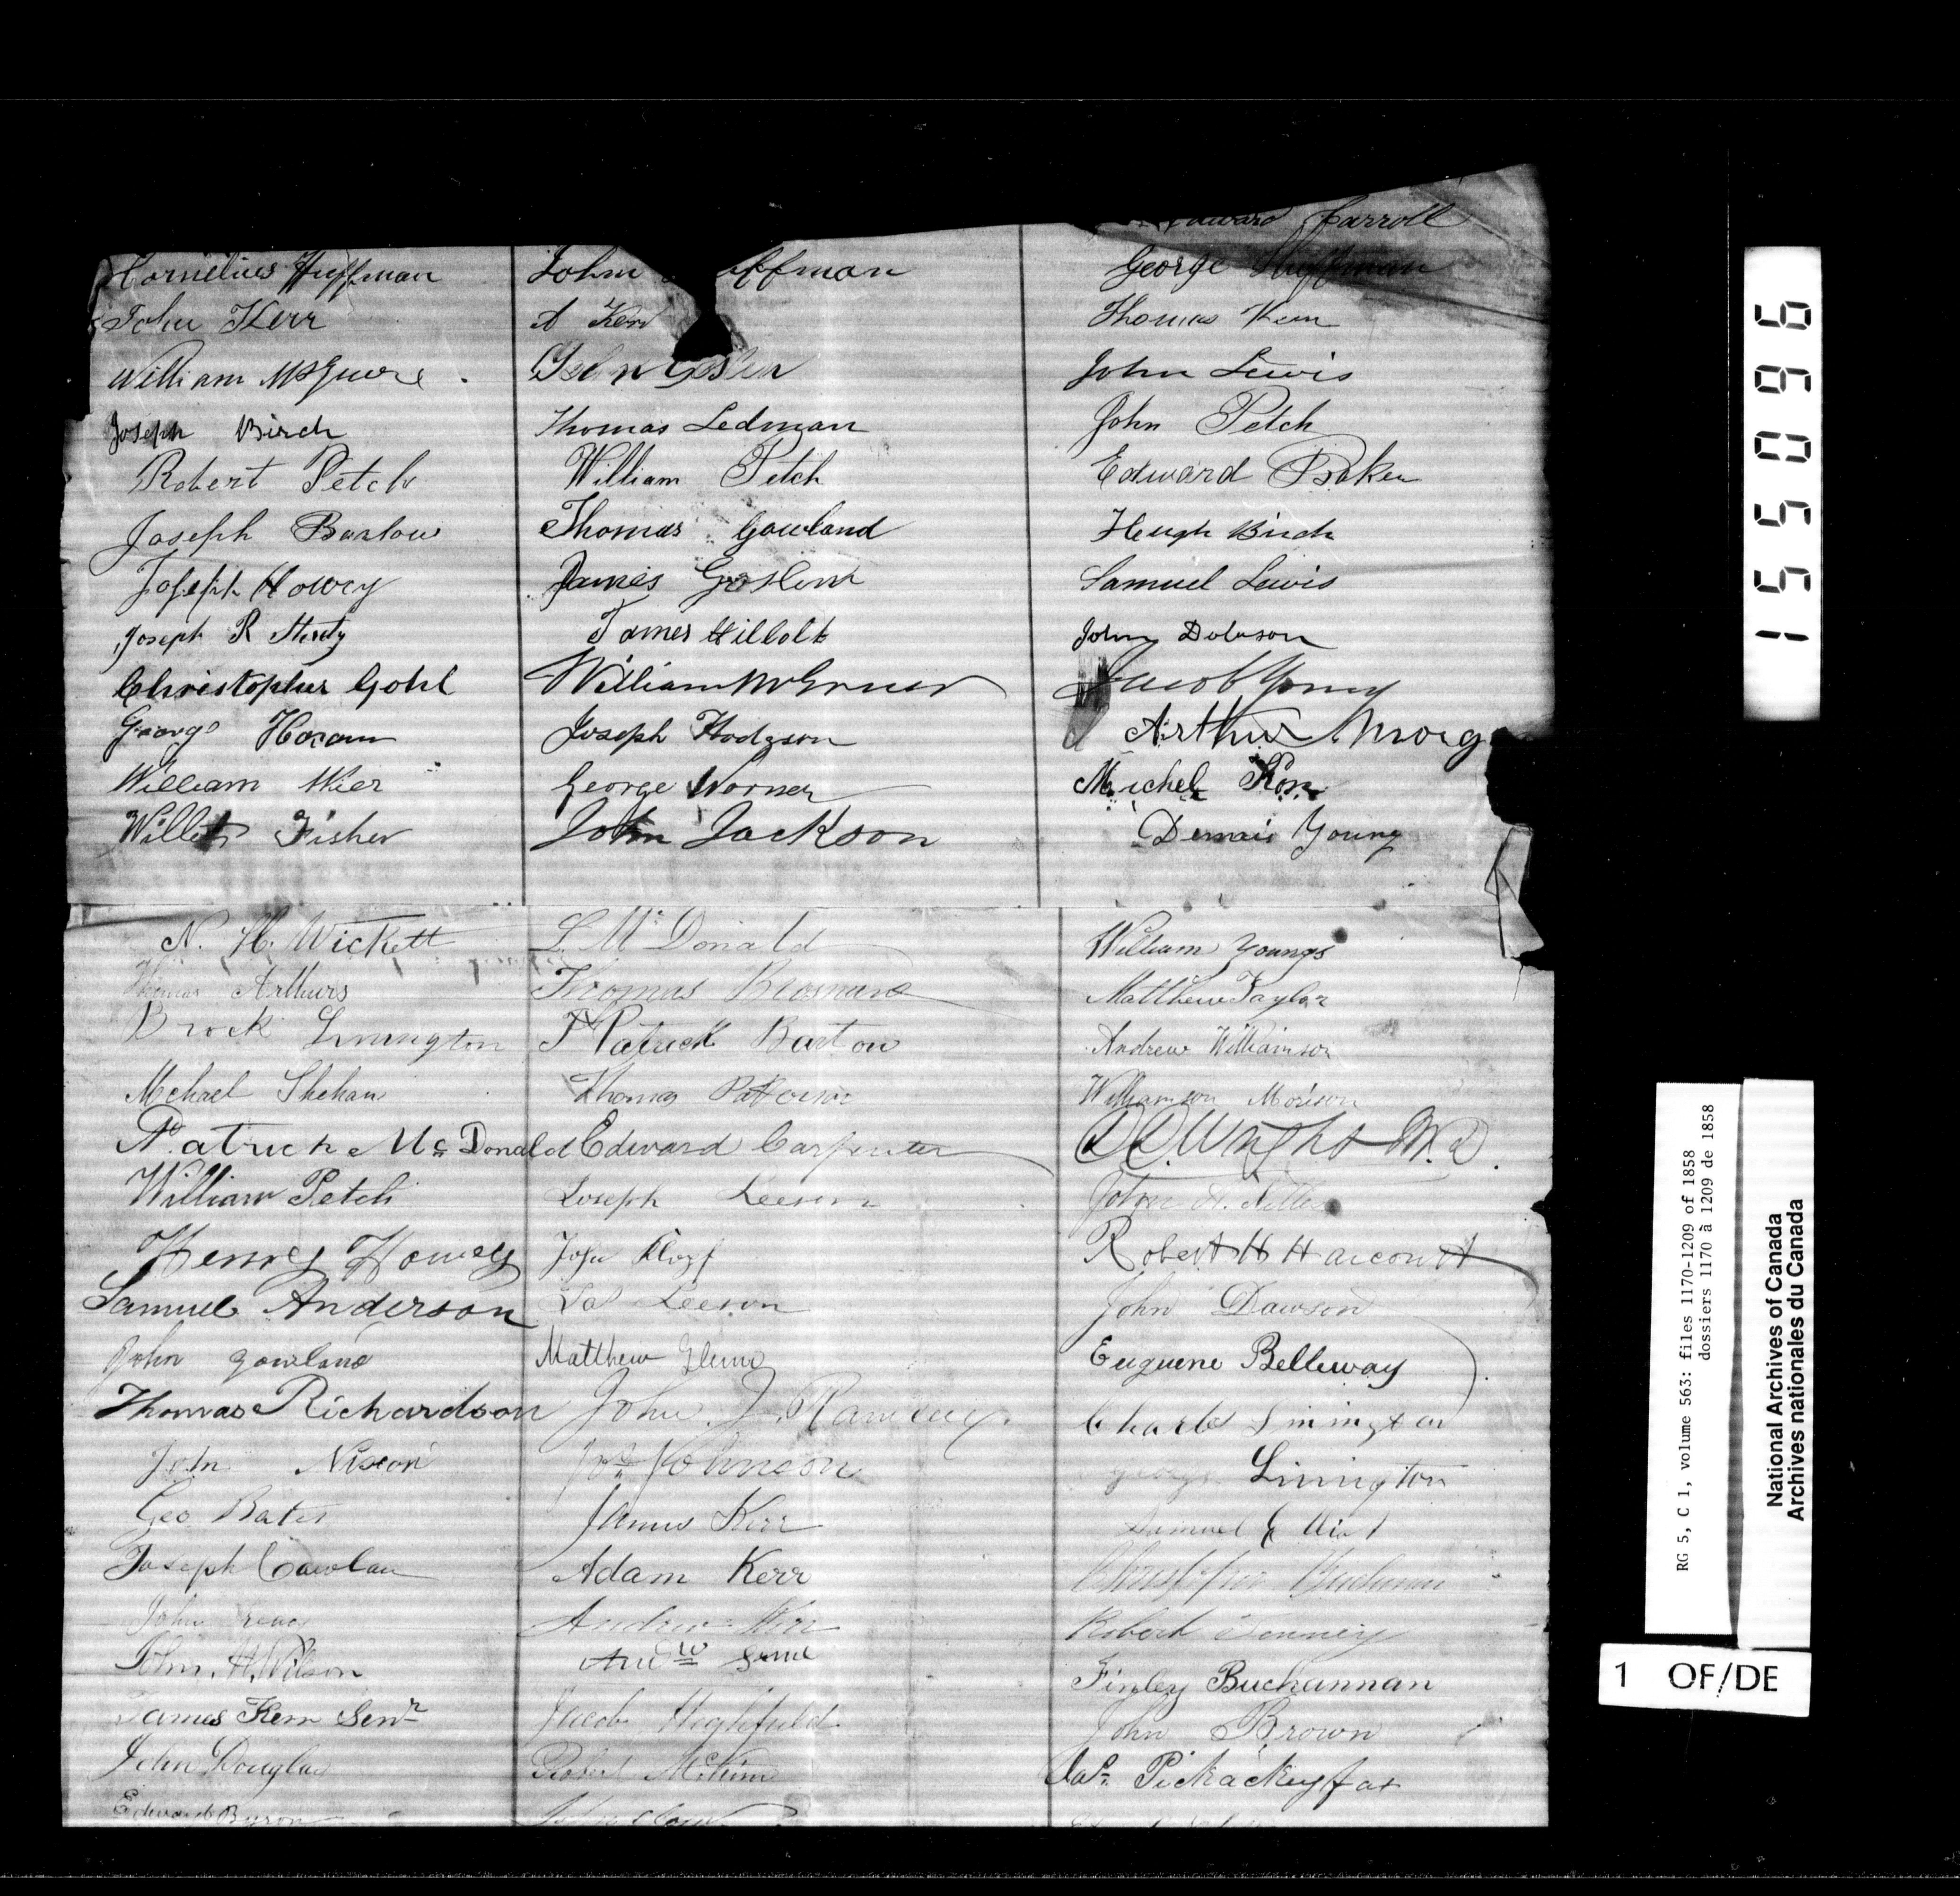 Edward Carroll
Cornelius Huffman
John Kerr
William McGuire
Joseph Birch
Robert Petch
Joseph Barlow
Joseph Howey
Joseph R
Christopher Gohl
George
William
Fisher
John ffman
A Kerr
Thomas Ledman
William Petch
Thomas Gowland
James Goslin
James
William
Joseph Hodgson
George Worner
John Jackson
George Huffman
Thomas
John Lewis
John Petch
Edward Baker
Hugh Birch
Samuel Lewis
John Dobson
Jacob Young
Arthur Morg
Michel
Dennis Young
N. H. Wickett
Thomas Arthurs
Brock Linington
Mchael Shehan
Patrick Mc Donald
William Petch
Henry Howey
Samuel Anderson
John Gowland
Thomas Richardson
John Nixon
Geo Bates
Joseph
John
John. H. Wilson
James Kerr Senr
John Douglas
Edward Byron
L. Mc Donald
Thomas
Patrick Barton
Thomas
Edward Carpenter
Joseph Leeson
John
Jas Leeson
Matthew
John. J. Ramsey.
Jos. Johnson
James Kerr
Adam Kerr
Andrew Kerr
Andw
Jacob Highfield
Robert McKim
John
William Youngs
Matthew Taylor
Andrew Williamson
Williamson Morison
Wright M.D.
John
Robert H Harcourt
John Dawson
Euguene Belleway
Charles Linington
George Linington
Samuel
Robert
Finley Buchannan
John Brown
Jas.
155096
RG 5, C 1, volume 563: files 1170-1209 of 1858
dossiers 1170 à 1209 de 1858
National Archives of Canada
Archives nationales du Canada
1 OF/DE